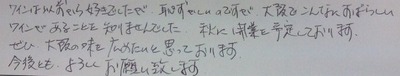 ワインはむかしから好きでしたが 恥ずかしいのですが 大阪でこんなすばらしい
ワインがあることを知りませんでした 秋に開業を予定しております。
ぜひ 大阪の味を広めたいと思っております。
今後とも よろしくお願い致します